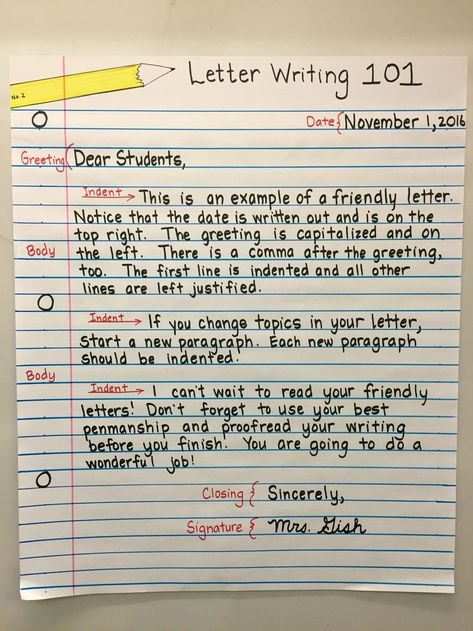 Letter Writing 101
No. 2
Date{ November 1, 2016
Greeting( Dear Students,
Indent → This is an example of a friendly letter.
Notice that the date is written out and is on the
top right. The greeting is capitalized and on
Body the left. There is a comma after the greeting,
too. The first line is indented and all other
lines are left justified.
Indent → If you change topics in your letter,
start a new paragraph. Each new paragraph
should be indented.
Body
Indent → I can't wait to read your friendly
letters! Don't forget to use your best
penmanship and proofread your writing
before you finish! You are going to do a
wonderful job!
Closing { Sincerely,
Signature { Mrs. Gish